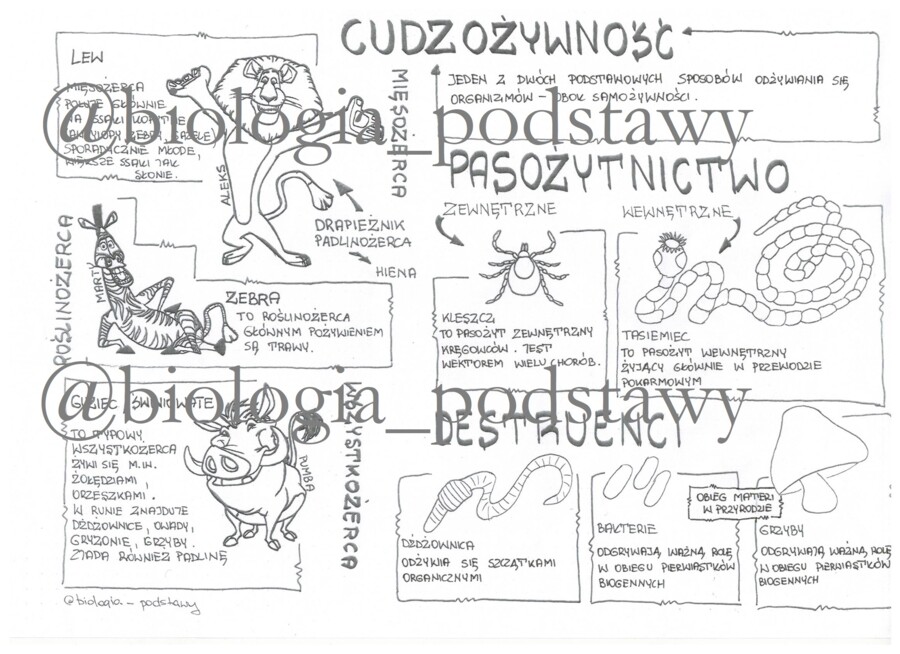 CUDZOŻYWNOŚĆ
JEDEN Z DWÓCH PODSTAWOWYCH SPOSOBÓW ODŻYWIANIA SIĘ
ORGANIZMÓW - OBOK SAMOŻYWNOŚCI.
LEW
MIĘSOŻERCA
POLUJE GŁÓWNIE
NA SSAKI KOPYTNE
ZEBRY, GAZELE
SPORADYCZNIE MŁODE,
WIĘKSZE SSAKI JAK
SŁONIE.
ALEKS
MIĘSOŻERCA
DRAPIEŻNIK
PADLINOŻERCA
HIENA
@biologia_podstawy
ROŚLINOŻERCA
MARTY
ZEBRA
TO ROŚLINOŻERCA
GŁÓWNYM POŻYWIENIEM
SĄ TRAWY.
PASOŻYTNICTWO
ZEWNĘTRZNE
WEWNĘTRZNE
KLESZCZ
TO PASOŻYT ZEWNĘTRZNY
KRĘGOWCÓW. JEST
WEKTOREM WIELU CHORÓB.
TASIEMIEC
TO PASOŻYT WEWNĘTRZNY
ŻYJĄCY GŁÓWNIE W PRZEWODZIE
POKARMOWYM
@biologia_podstawy
GUZIEC ŚWINIOWATE
TO TYPOWY
WSZYSTKOŻERCA
ŻYWI SIĘ M.IN.
ŻOŁĘDZIAMI,
ORZESZKAMI.
W RUNIE ZNAJDUJE
DŻDŻOWNICE, OWADY,
GRYZONIE, GRZYBY.
ZJADA RÓWNIEŻ PADLINĘ
PUMBA
WSZYSTKOŻERCA
DESTRUENCI
DŻDŻOWNICA
ODŻYWIA SIĘ SZCZĄTKAMI
ORGANICZNYMI
BAKTERIE
ODGRYWAJĄ WAŻNĄ ROLĘ
W OBIEGU PIERWIASTKÓW
BIOGENNYCH
OBIEG MATERII
W PRZYRODZIE
GRZYBY
ODGRYWAJĄ WAŻNĄ ROLĘ
W OBIEGU PIERWIASTKÓW
BIOGENNYCH
@biologia_podstawy